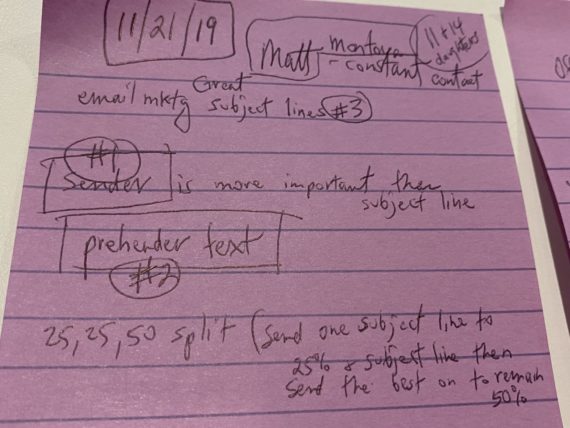 11/21/19
Matt - Montoya
- constant contact
11 + 14
daghters
email mktg Great subject lines #3
#1
Sender is more important then
subject line
preheader text
#2
25, 25, 50 split (Send one subject line to
25% & subject line then
send the best on to remain
50%